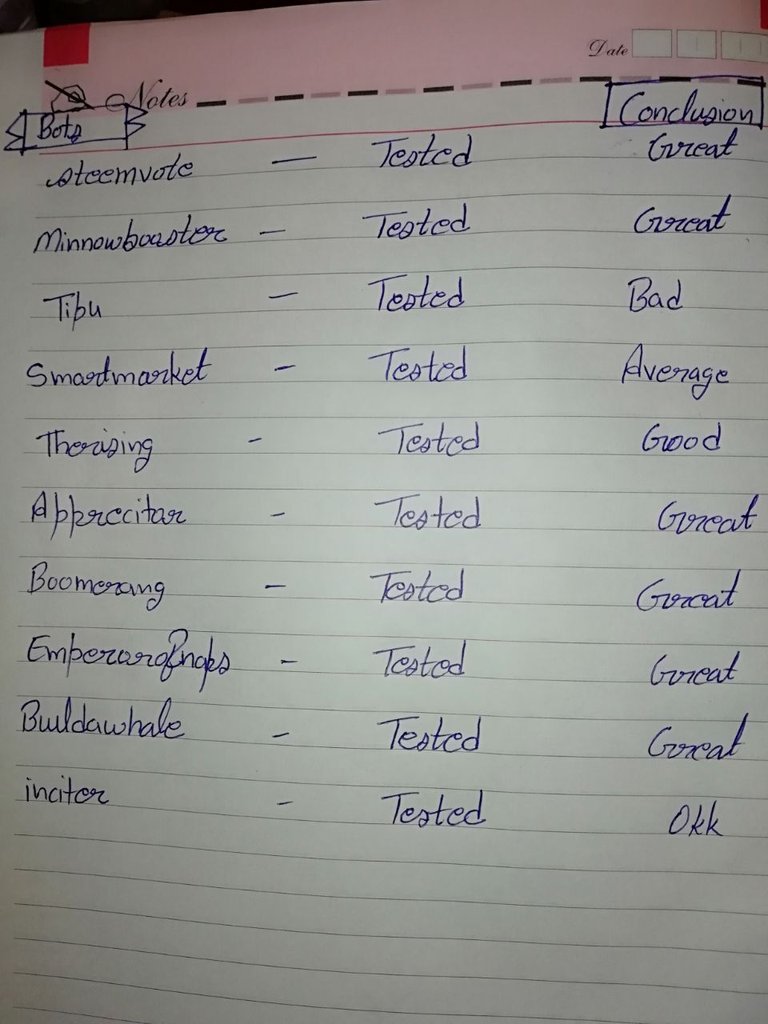 Date
Notes
Bots Conclusion
steemvote — Tested Great
Minnowboaster - Tested Great
Tipu - Tested Bad
Smartmarket - Tested Average
Therising - Tested Good
Apprecitar - Tested Great
Boomerang - Tested Great
Emperorofnaps - Tested Great
Buildawhale - Tested Great
inciter - Tested Okk